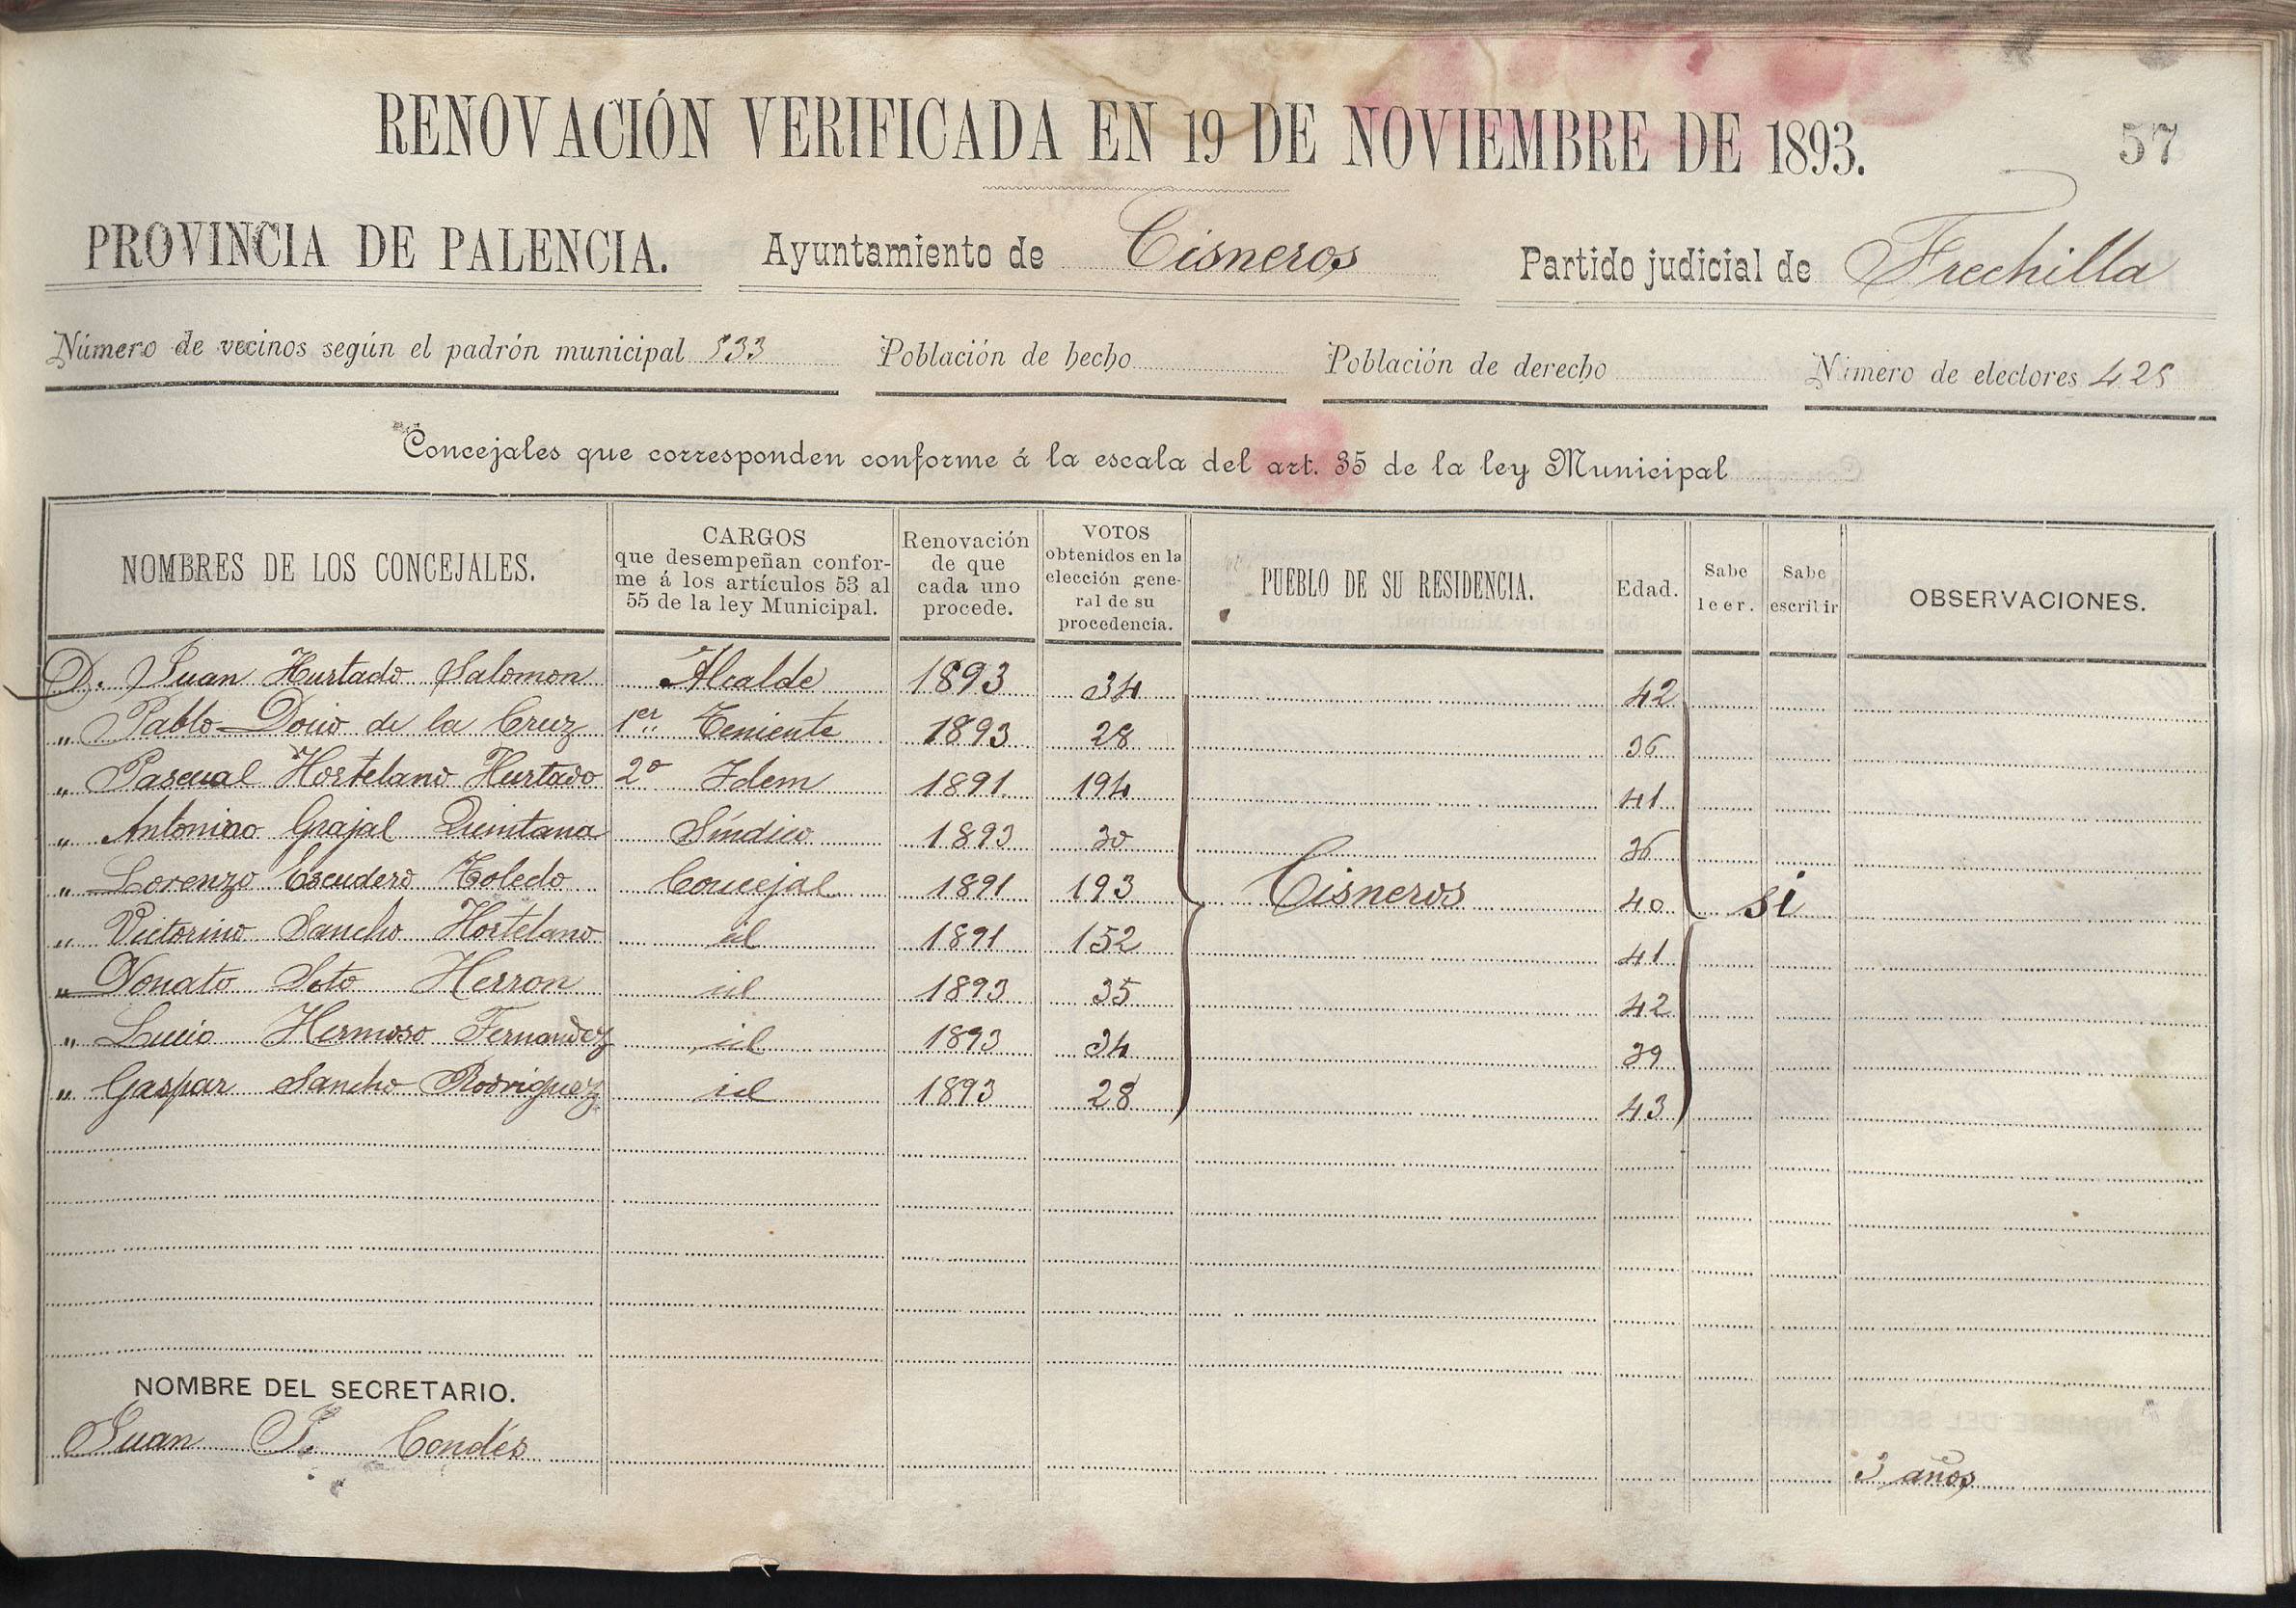 RENOVACIÓN VERIFICADA EN 19 DE NOVIEMBRE DE 1893. 57
PROVINCIA DE PALENCIA. Ayuntamiento de Cisneros Partido judicial de Frechilla
Número de vecinos según el padrón municipal 533 Población de hecho Población de derecho Número de electores 425
Concejales que corresponden conforme á la escala del art. 35 de la ley Municipal
NOMBRES DE LOS CONCEJALES. CARGOS que desempeñan confor-me á los artículos 53 al 55 de la ley Municipal. Renovación de que cada uno procede. VOTOS obtenidos en la elección gene-ral de su procedencia. PUEBLO DE SU RESIDENCIA. Edad. Sabe leer. Sabe escribir OBSERVACIONES.
D. Juan Hurtado Salomon Alcalde 1893 34 42
" Pablo Doiio de la Cruz 1er Teniente 1893 28 36
" Pascual Hortelano Hurtado 2º Idem 1891 194 41
" Antonino Grajal Quintana Síndico 1893 30 36
" Lorenzo Escudero Toledo Concejal 1891 193 Cisneros 40 si
" Victorino Sancho Hortelano id 1891 152 41
" Donato Soto Herron id 1893 35 42
" Lucio Hermoso Fernandez id 1893 34 39
" Gaspar Sancho Rodriguez id 1893 28 43
NOMBRE DEL SECRETARIO.
Juan P. Condés
3 años